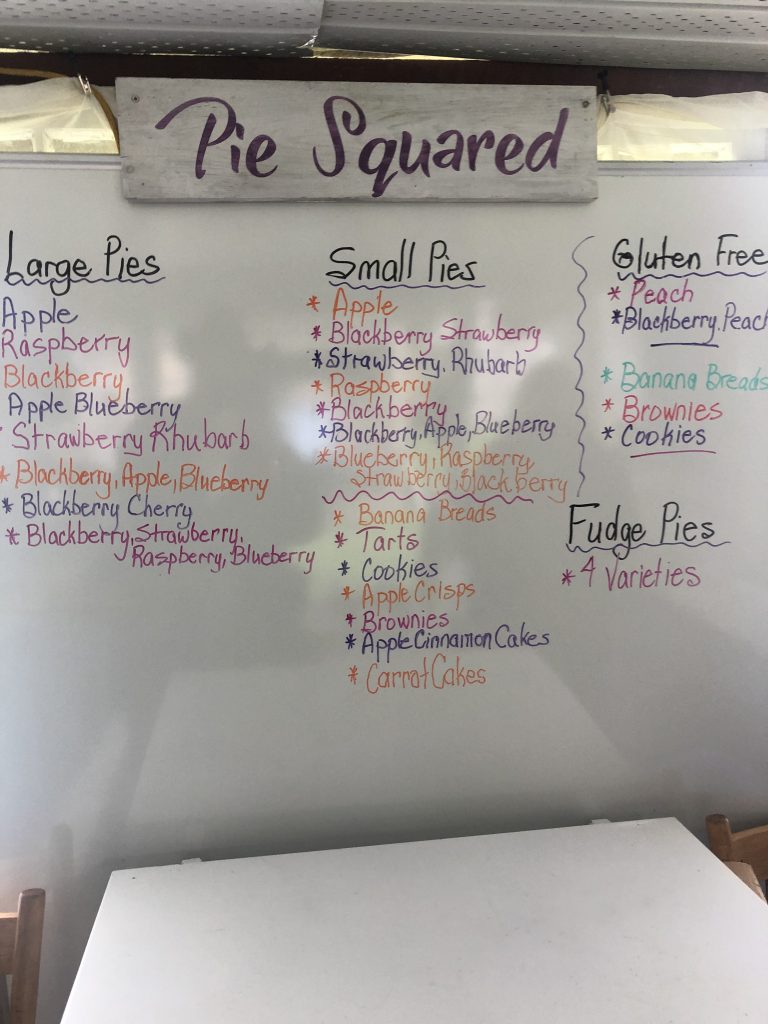 Pie Squared
Large Pies
Apple
Raspberry
Blackberry
Apple Blueberry
* Strawberry Rhubarb
* Blackberry, Apple, Blueberry
* Blackberry Cherry
* Blackberry, Strawberry,
Raspberry, Blueberry
Small Pies
* Apple
* Blackberry Strawberry
* Strawberry. Rhubarb
* Raspberry
* Blackberry
* Blackberry, Apple, Blueberry
* Blueberry, Raspberry,
Strawberry, Blackberry
* Banana Breads
* Tarts
* Cookies
* Apple Crisps
* Brownies
* Apple Cinnamon Cakes
* Carrot Cakes
Gluten Free
* Peach
* Blackberry. Peach
* Banana Breads
* Brownies
* Cookies
Fudge Pies
* 4 Varieties